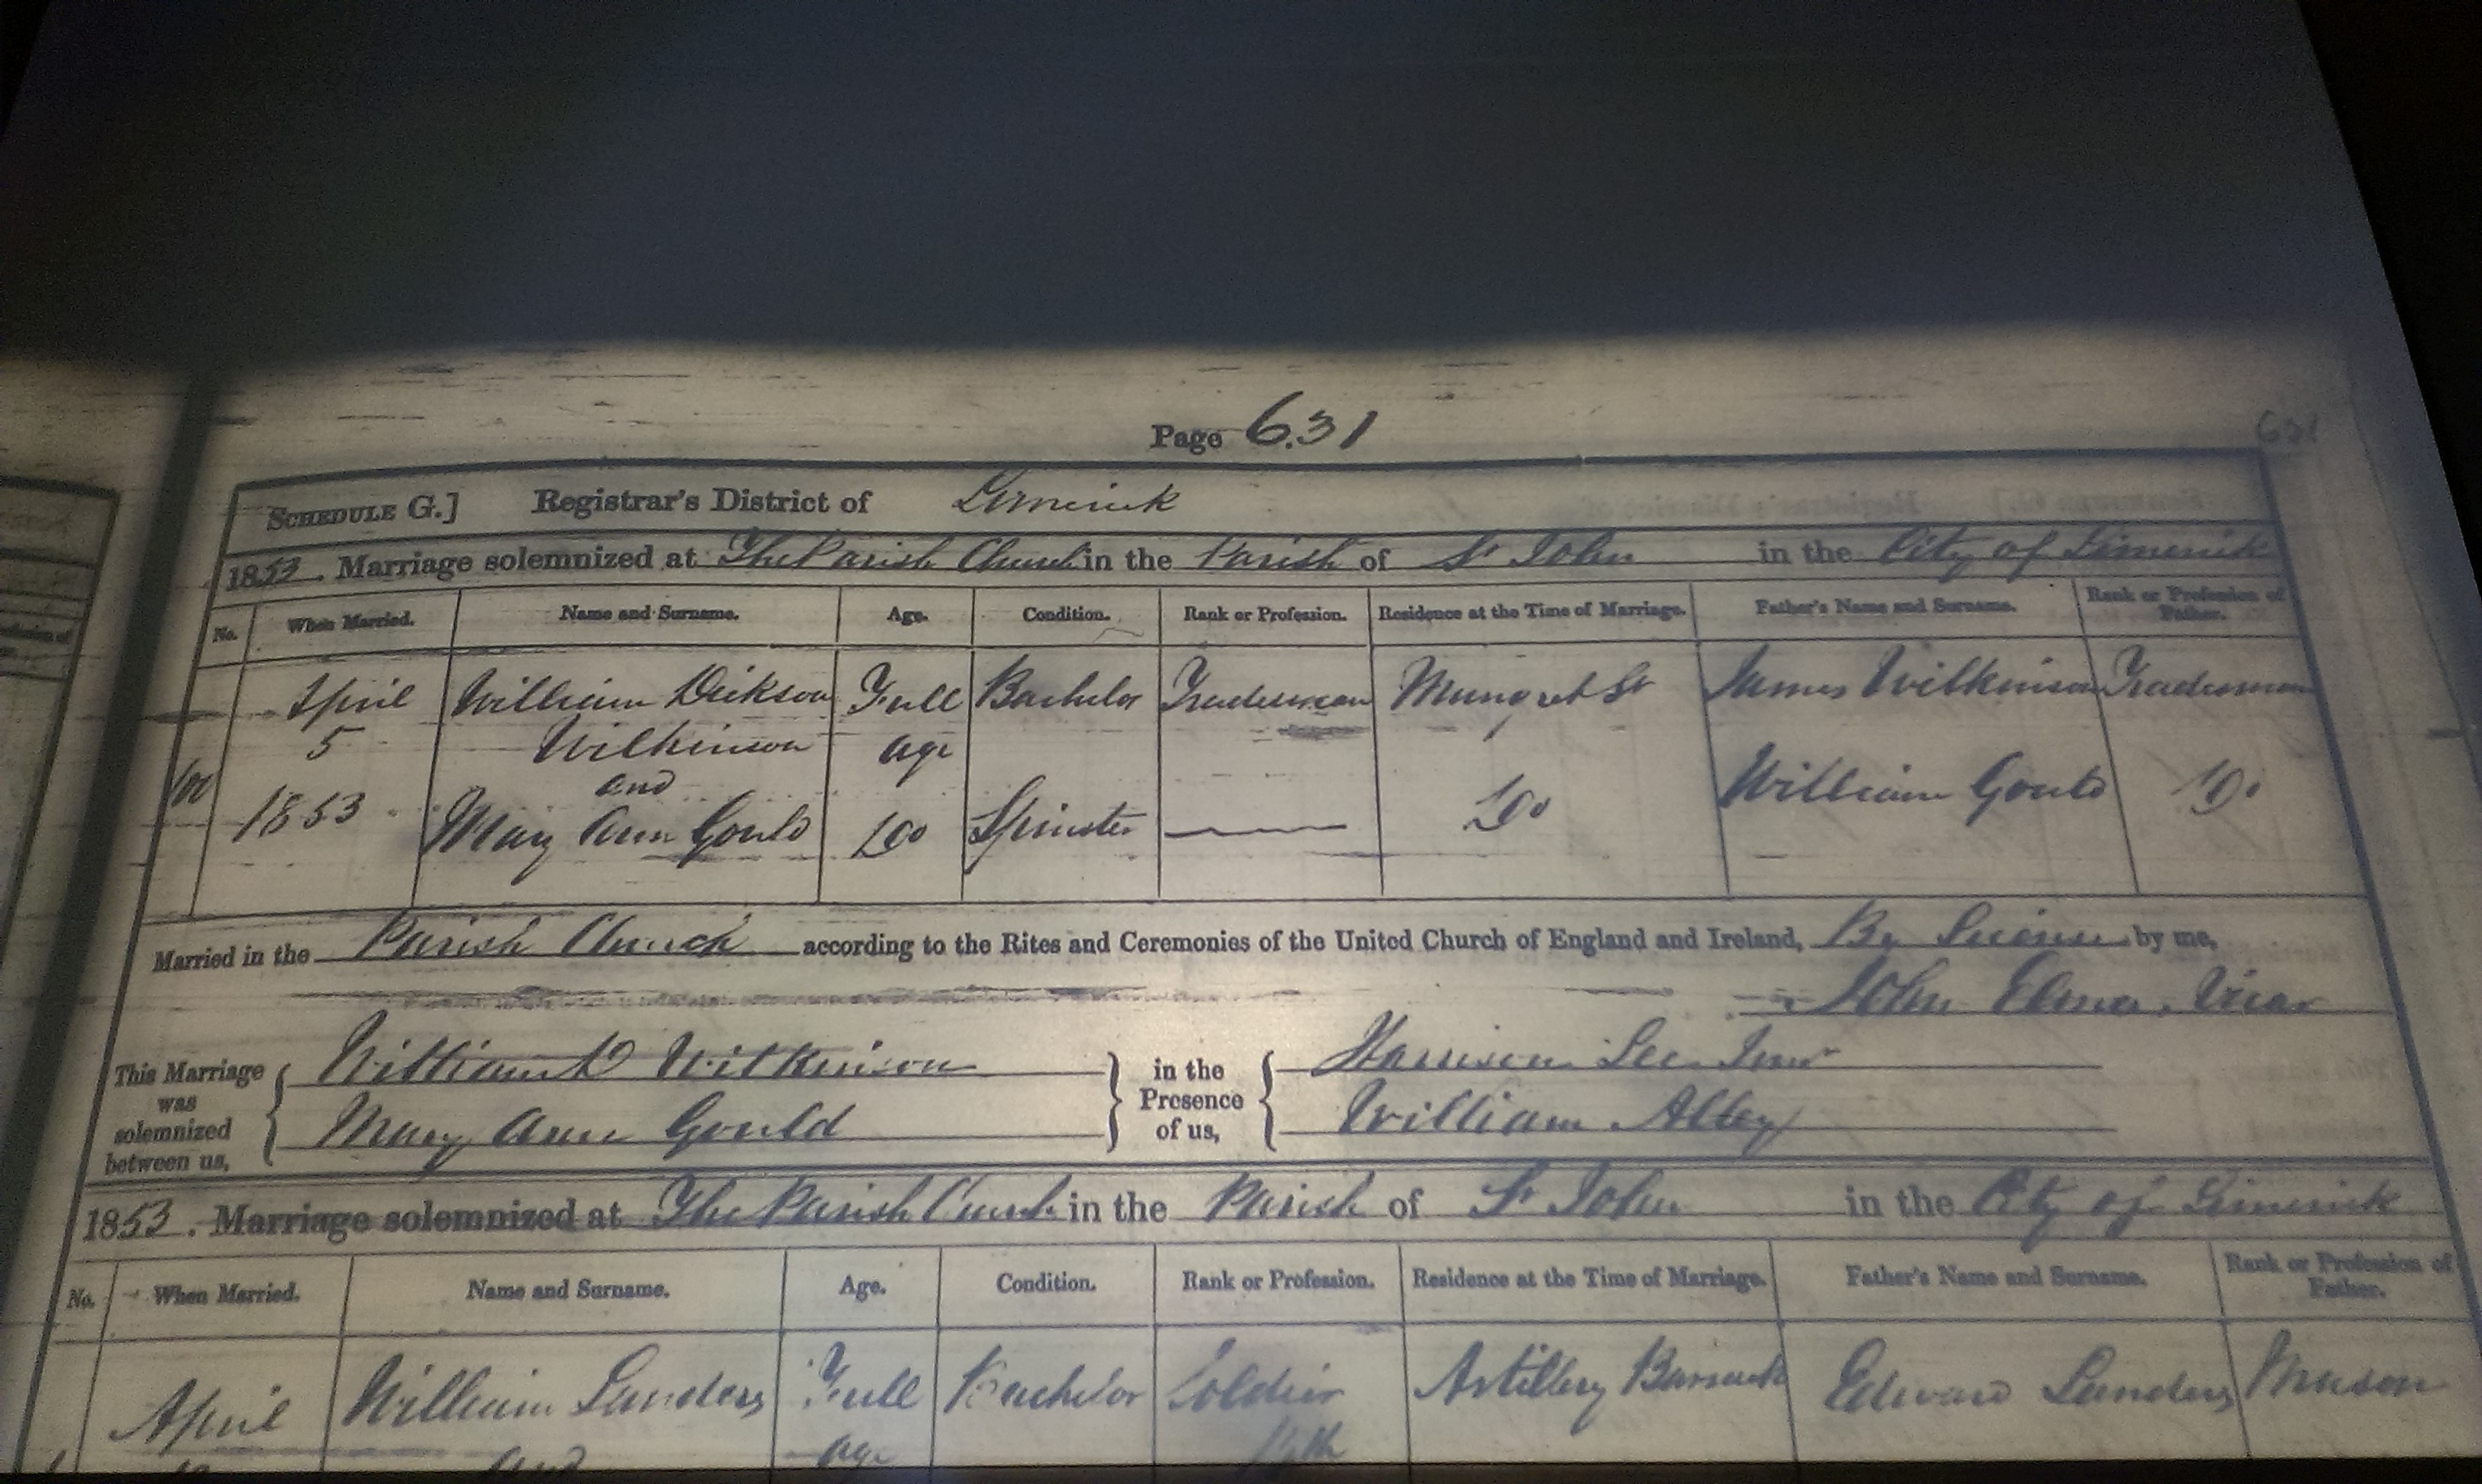 Page 631
631
SCHEDULE G.] Registrar's District of Limerick
1853. Marriage solemnized at The Parish Church in the Parish of St John in the City of Limerick
No. When Married. Name and Surname. Age. Condition. Rank or Profession. Residence at the Time of Marriage. Father's Name and Surname. Rank or Profession of Father.
April William Dickson Full Bachelor Tradesman Mungret St James Wilkinson Tradesman
5 Wilkinson age
and William Gould Do
1853 Mary Ann Gould Do Spinster — Do
Married in the Parish Church according to the Rites and Ceremonies of the United Church of England and Ireland, By License by me,
John Elmes, Vicar
This Marriage was solemnized between us, { William D Wilkinson } in the Presence of us, { Harrison Lee Junr
Mary Ann Gould William Alley
1853. Marriage solemnized at The Parish Church in the Parish of St John in the City of Limerick
No. When Married. Name and Surname. Age. Condition. Rank or Profession. Residence at the Time of Marriage. Father's Name and Surname. Rank or Profession of Father.
April William Landers Full Bachelor Soldier Artillery Barrack Edward Landers Mason
and age